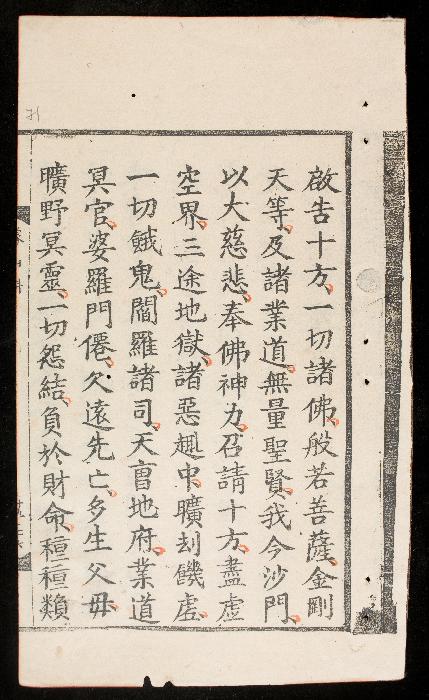 啟告十方、一切諸佛、般若菩薩、金剛
天等、及諸業道、無量聖賢、我今沙門、
以大慈悲、奉佛神力、召請十方、盡虛
空界、三途地獄、諸惡趣中、曠刦饑虛、
一切餓鬼、閻羅諸司、天曹地府、業道
冥官、婆羅門僊、久遠先亡、多生父母、
曠野冥靈、一切怨結、負於財命、種種類